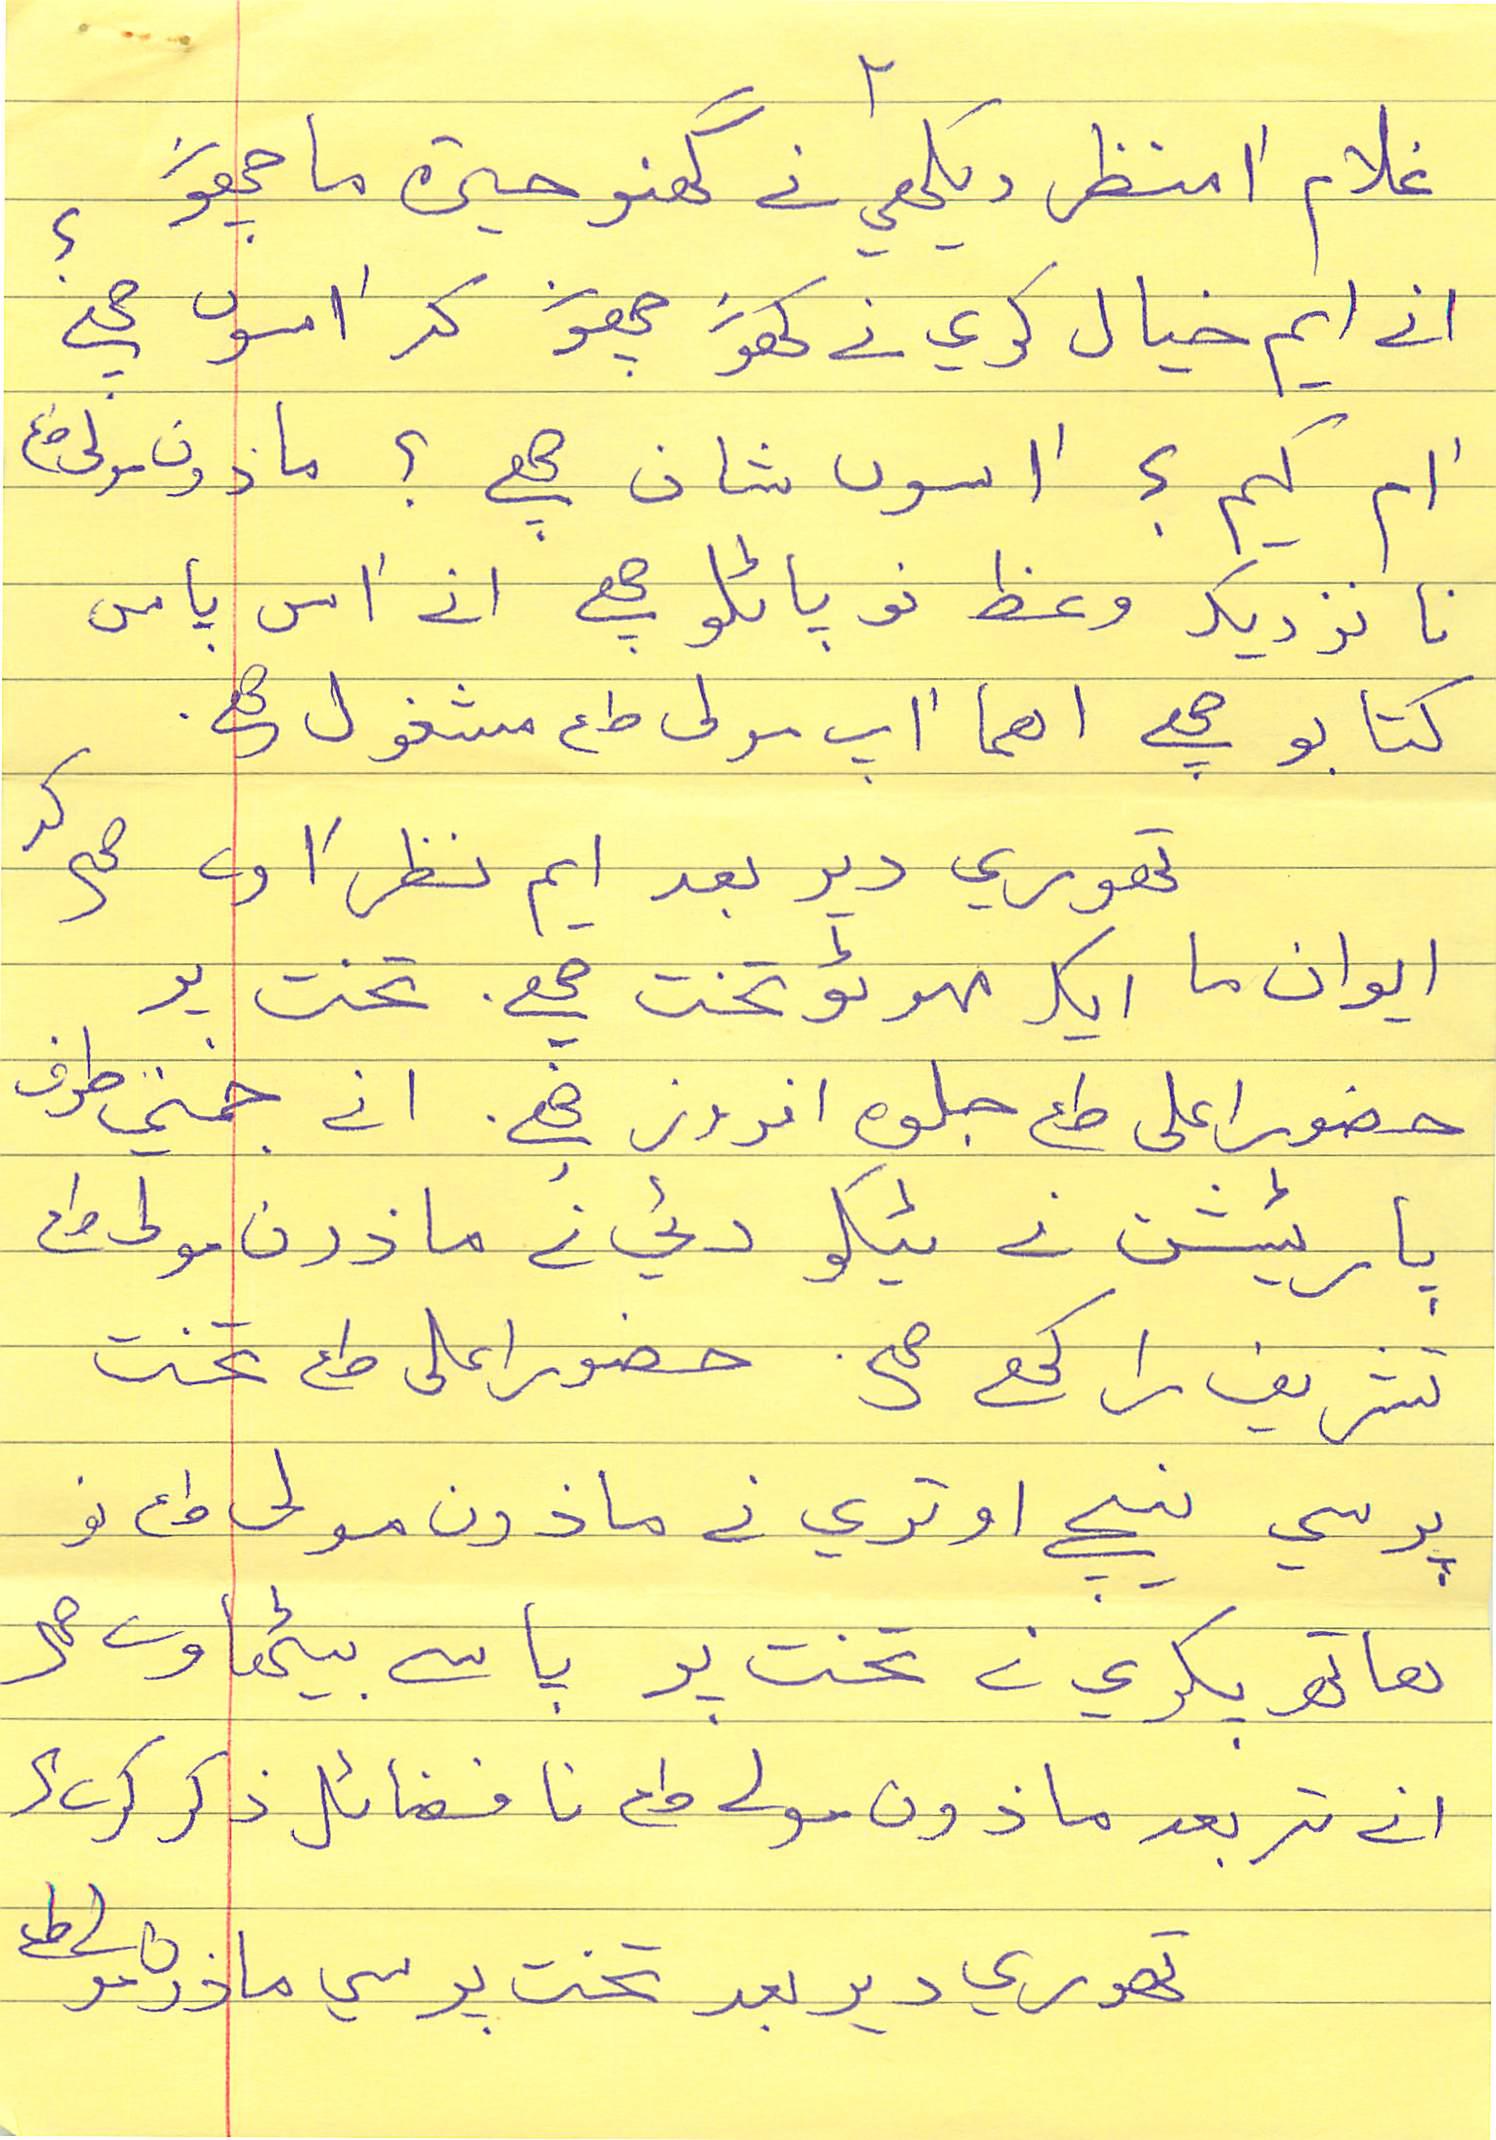 ٢
غلام اٰ منظر ديكهي نے گهنو حيرة ما چهوُں
انے ايم خيال كري نے كهوُں چهوُں كہ اٰ سوں چھے؟
اٰم كيم؟ اٰ سوں شان چھے؟ ماذون مولى طع
نا نزديك وعظ نو پاٹلو چھے انے اٰس پاس
كتابو چھے اهما اٰپ مولى طع مشغول چھے.
تهوري دير بعد ايم نظر اٰوے چھے كہ
ايوان ما ايك مهوٹو تخت چھے. تخت پر
حضور اعلى طع جلوه افروز چھے. انے جمني طرف
پارٹيشن نے ٹيكو دئي نے ماذون مولى طع
تشريف راكھے چھے. حضور اعلى طع تخت
پر سي نيچے اوتري نے ماذون مولى طع نو
هاتھ پكري نے تخت پر پاسے بيٹهاوے چھے
انے تہ بعد ماذون مولى طع نا فضائل ذكر كرے چھے
تهوري دير بعد تخت پر سي ماذون مولى طع